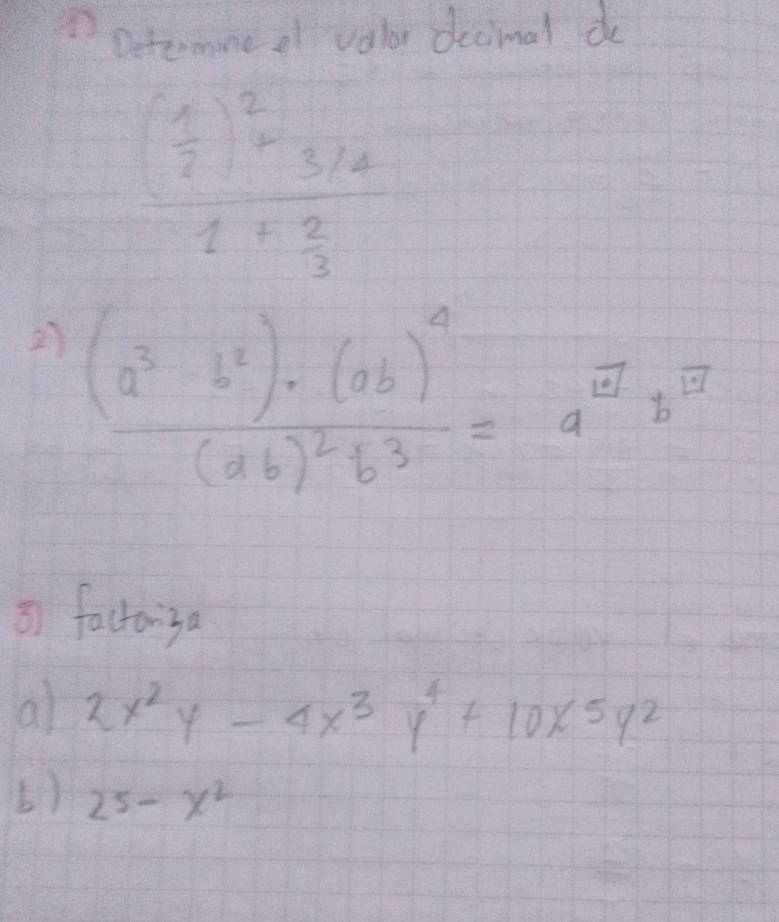 1) Determine el valor decimal de
(1/2)² + 3/4
1 + 2/3
2) (a³ b²) · (ab)⁴
(ab)² b³ = a^□ b^□
3) factoriza
a) 2x²y - 4x³y⁴ + 10x⁵y²
b) 25 - x²